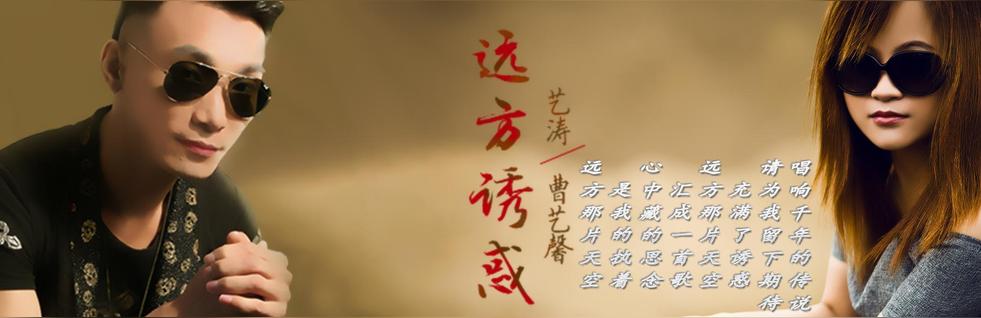 远方诱惑
艺涛/曹艺馨
远方那片天空
是我的执着
心中藏的思念
汇成一首歌
远方那片天空
充满了诱惑
请为我留下期待
唱响千年的传说